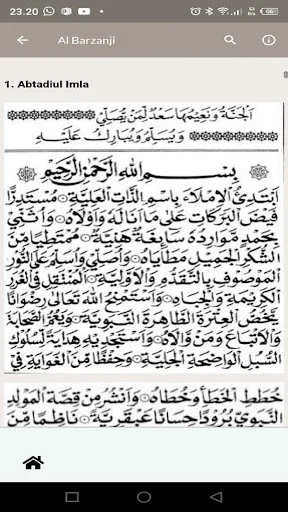 23.20
Al Barzanji
1. Abtadiul Imla
اَلْجَنَّةُ وَنَعِيمُهَا سَعْدٌ لِمَنْ يُصَلِّي
وَيُسَلِّمُ وَيُبَارِكُ عَلَيْهِ
بِسْمِ اللهِ الرَّحْمٰنِ الرَّحِيْمِ
اَبْتَدِئُ الْإِمْلَاءَ بِاسْمِ الذَّاتِ الْعَلِيَّةِ ۞ مُسْتَدِرًّا
فَيْضَ الْبَرَكَاتِ عَلَى مَا أَنَالَهُ وَأَوْلَاهُ ۞ وَأُثَنِّي
بِحَمْدٍ مَوَارِدُهُ سَائِغَةٌ هَنِيَّةٌ ۞ مُمْتَطِيًا مِنَ
الشُّكْرِ الْجَمِيلِ مَطَايَاهُ ۞ وَأُصَلِّي وَأُسَلِّمُ عَلَى النُّورِ
الْمَوْصُوفِ بِالتَّقَدُّمِ وَالْأَوَّلِيَّةِ ۞ الْمُنْتَقِلِ فِي الْغُرَرِ
الْكَرِيمَةِ وَالْجِبَاهِ ۞ وَأَسْتَمْنِحُ اللهَ تَعَالَى رِضْوَانًا
يَخُصُّ الْعِتْرَةَ الطَّاهِرَةَ النَّبَوِيَّةَ ۞ وَيَعُمُّ الصَّحَابَةَ
وَالْأَتْبَاعَ وَمَنْ وَالَاهُ ۞ وَأَسْتَجْدِيهِ هِدَايَةً لِسُلُوكِ
السُّبُلِ الْوَاضِحَةِ الْجَلِيَّةِ ۞ وَحِفْظًا مِنَ الْغَوَايَةِ فِي
خُطَطِ الْخَطَأِ وَخُطَاهُ ۞ وَأَنْشُرُ مِنْ قِصَّةِ الْمَوْلِدِ
النَّبَوِيِّ بُرُودًا حِسَانًا عَبْقَرِيَّةً ۞ نَاظِمًا مِنَ